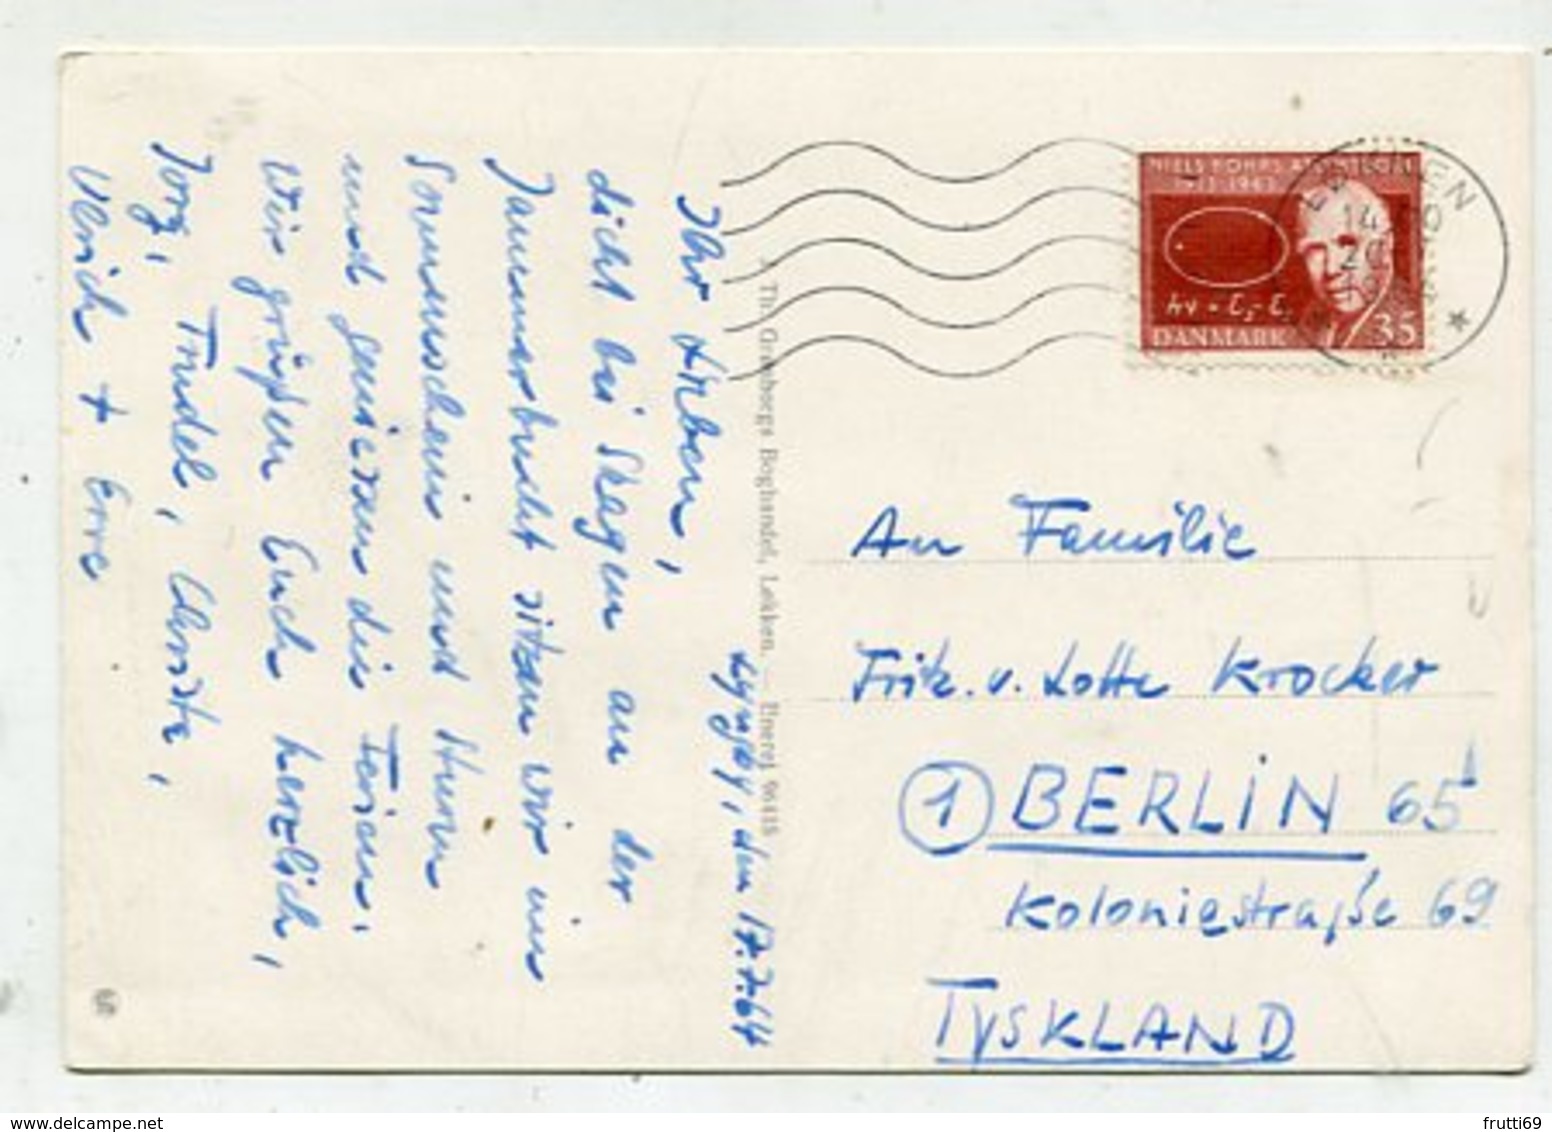 Lyngby, den 17.7.64
Ihr Lieben,
dicht bei Skagen an der
Jammerbucht sitzen wir im
Sonnenschein und Sturm
und geniessen die Ferien.
Wir grüßen Euch herzlich,
Jörg, Trudel, Christa,
Ulrich + Erre
Th. Grønborgs Boghandel, Løkken. — Eneret 96418
NIELS BOHRS ATOMTEORI
1913-1963
hν = E₂-E₁
DANMARK 35
LØKKEN
14
20
An Familie
Fritz. u. Lotte Krocker
1 BERLIN 65
Koloniestraße 69
TYSKLAND
frutti69